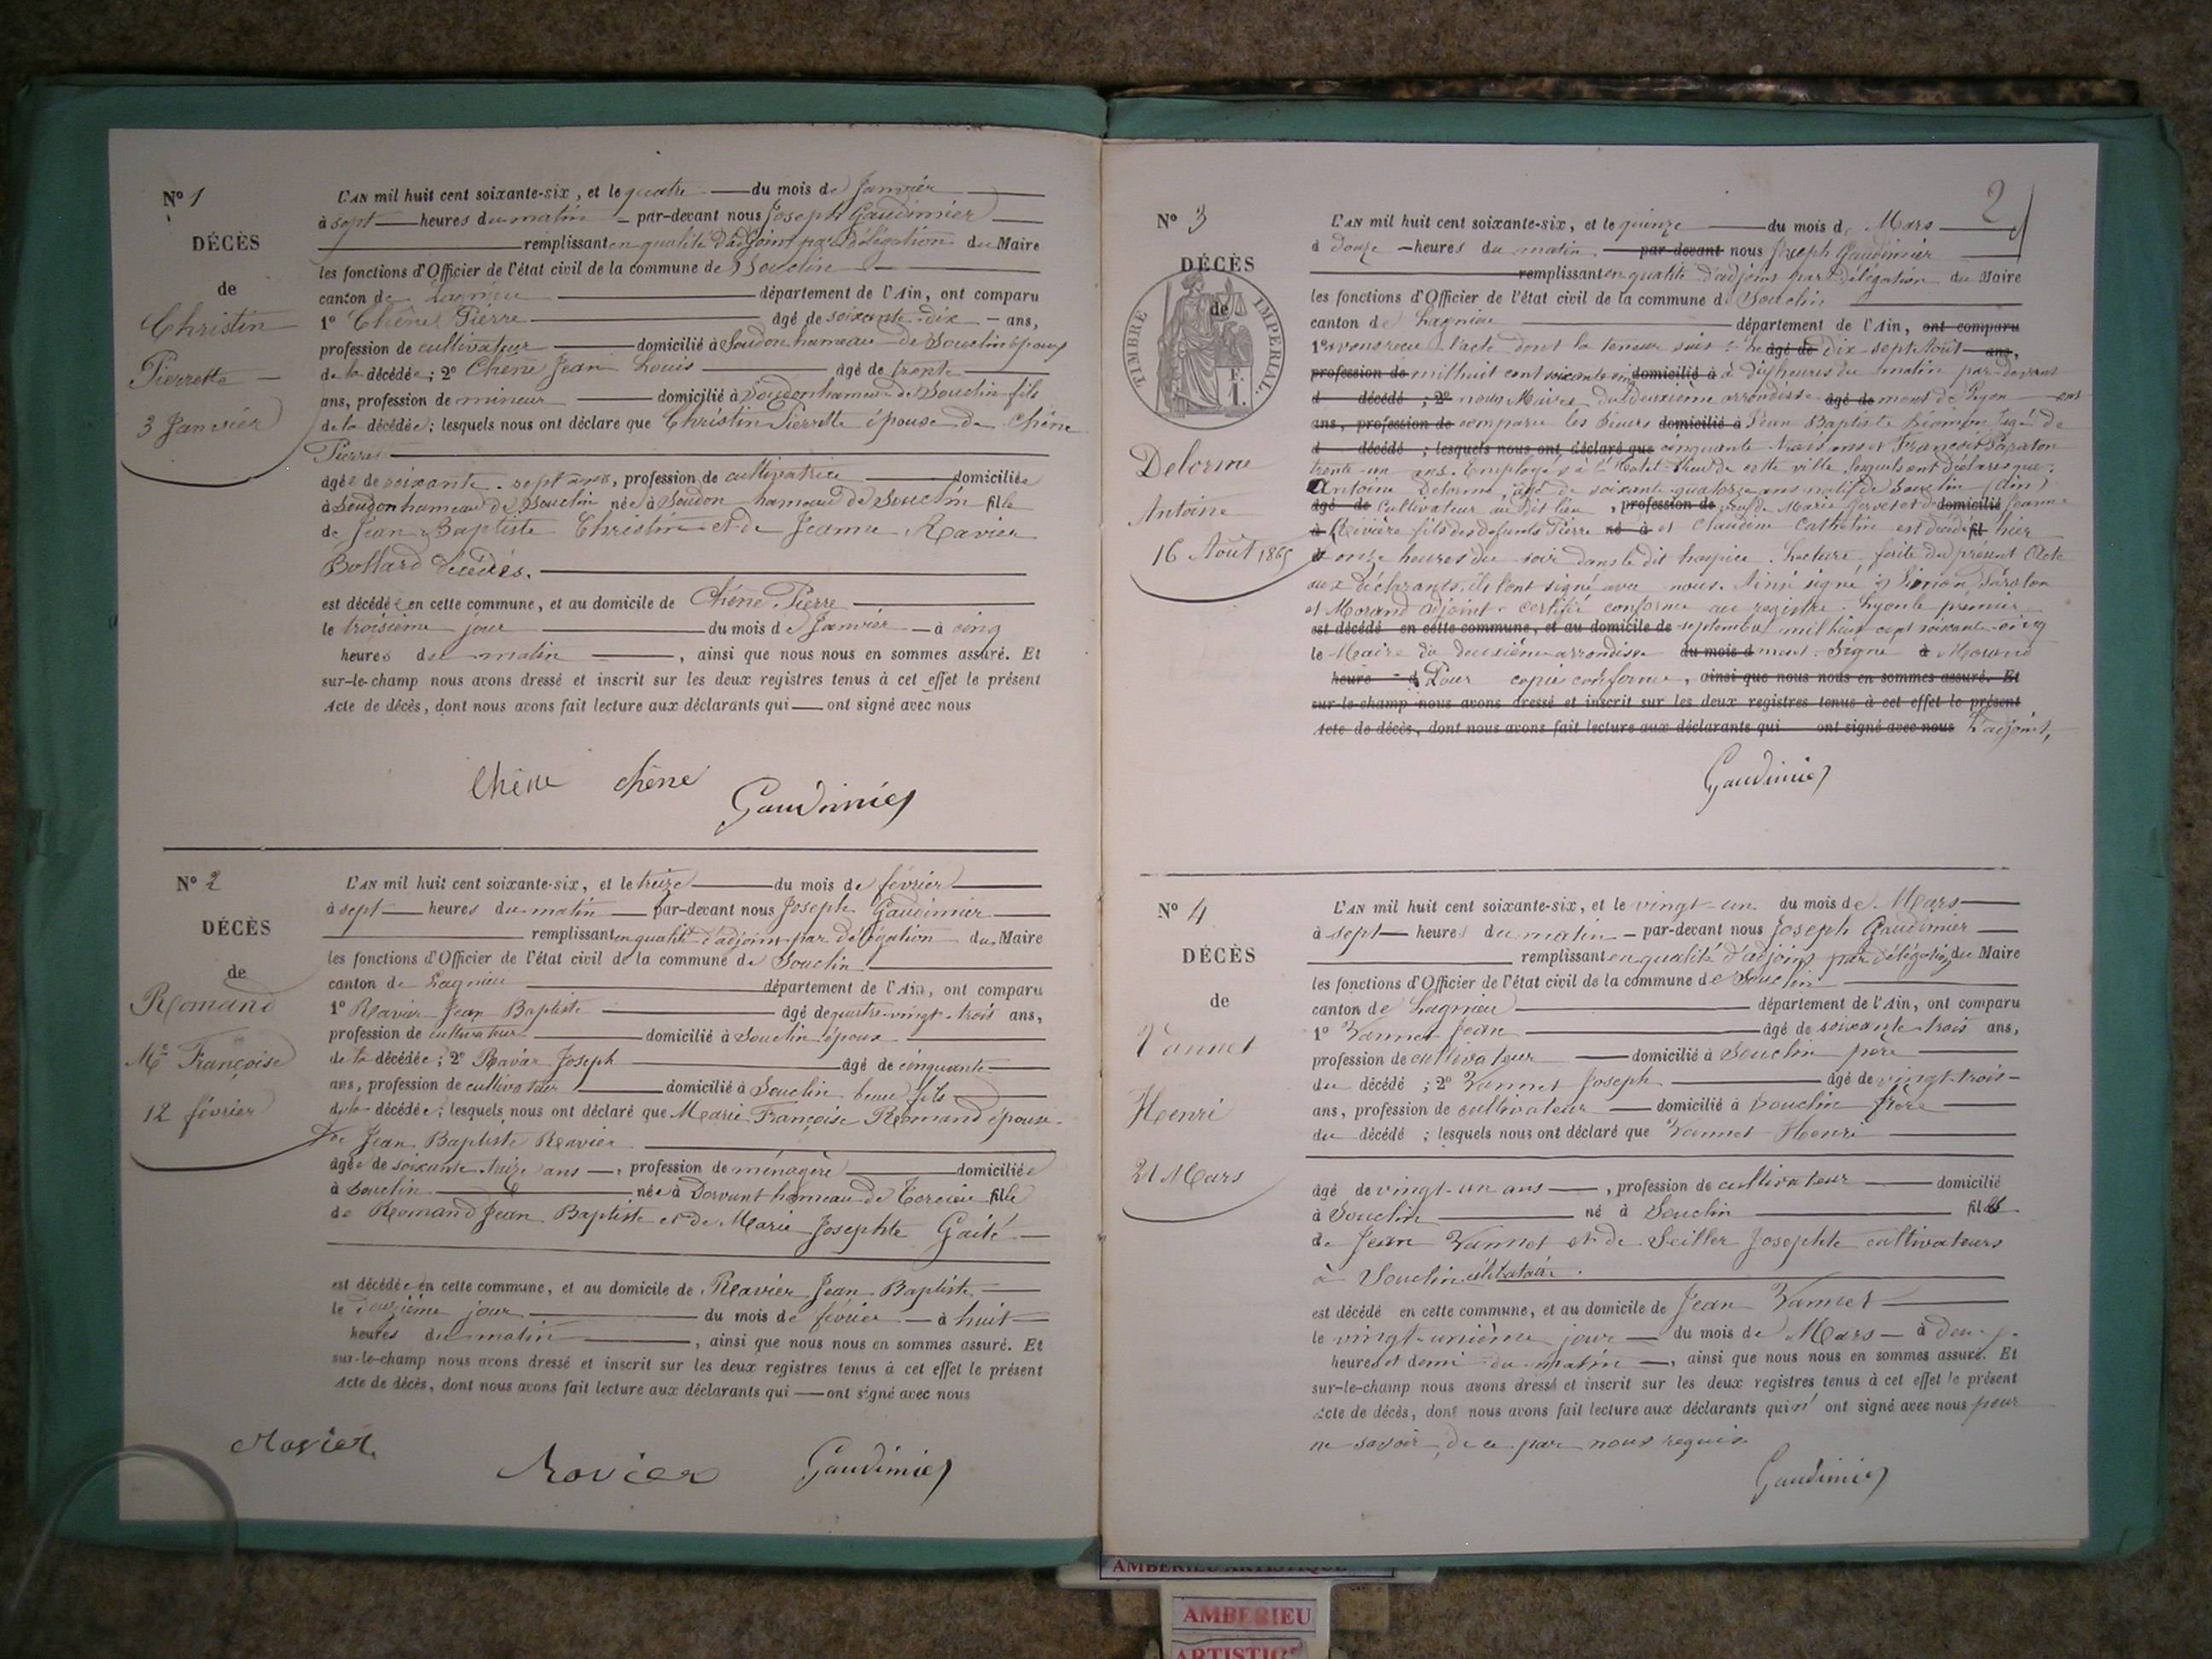 Nº 1
DÉCÈS
de
Christin
Pierrette
3 Janvier
L'AN mil huit cent soixante-six, et le quatre du mois de Janvier
à sept heures du matin par-devant nous Joseph Gaudimier
remplissant en qualité d'adjoint par délégation du Maire
les fonctions d'Officier de l'état civil de la commune de Souclin
canton de Lagnieu département de l'Ain, ont comparu
1º Chêne Pierre âgé de soixante-dix ans,
profession de cultivateur domicilié à Soudon hameau de Souclin époux
de la décédée; 2º Chêne Jean Louis âgé de trente
ans, profession de mineur domicilié à Soudon hameau de Souclin fils
de la décédée; lesquels nous ont déclaré que Christin Pierrette épouse de Chêne
Pierre
âgée de soixante-sept ans, profession de cultivatrice domiciliée
à Soudon hameau de Souclin née à Soudon hameau de Souclin fille
de Jean Baptiste Christin et de Jeanne Ravier
Bollard décédés.
est décédée en cette commune, et au domicile de Chêne Pierre
le troisième jour du mois de Janvier à cinq
heures du matin, ainsi que nous nous en sommes assuré. Et
sur-le-champ nous avons dressé et inscrit sur les deux registres tenus à cet effet le présent
Acte de décès, dont nous avons fait lecture aux déclarants qui ont signé avec nous
Chêne chêne Gaudimier
Nº 2
DÉCÈS
de
Romand
Mie Françoise
12 février
L'AN mil huit cent soixante-six, et le treize du mois de février
à sept heures du matin par-devant nous Joseph Gaudimier
remplissant en qualité d'adjoint par délégation du Maire
les fonctions d'Officier de l'état civil de la commune de Souclin
canton de Lagnieu département de l'Ain, ont comparu
1º Ravier Jean Baptiste âgé de quatre-vingt-trois ans,
profession de cultivateur domicilié à Souclin époux
de la décédée; 2º Ravier Joseph âgé de cinquante
ans, profession de cultivateur domicilié à Souclin beau fils
de la décédée; lesquels nous ont déclaré que Marie Françoise Romand épouse
de Jean Baptiste Ravier
âgée de soixante-treize ans, profession de ménagère domiciliée
à Souclin née à Dorvant hameau de Torcieu fille
de Romand Jean Baptiste et de Marie Josephte Gaité
est décédée en cette commune, et au domicile de Ravier Jean Baptiste
le douzième jour du mois de février à huit
heures du matin, ainsi que nous nous en sommes assuré. Et
sur-le-champ nous avons dressé et inscrit sur les deux registres tenus à cet effet le présent
Acte de décès, dont nous avons fait lecture aux déclarants qui ont signé avec nous
Ravier Ravier Gaudimier
2
Nº 3
DÉCÈS
de
TIMBRE IMPÉRIAL
F. 1.
Delorme
Antoine
16 Août 1865
L'AN mil huit cent soixante-six, et le quinze du mois de Mars
à douze heures du matin par-devant nous Joseph Gaudimier
remplissant en qualité d'adjoint par délégation du Maire
les fonctions d'Officier de l'état civil de la commune de Souclin
canton de Lagnieu département de l'Ain, ont comparu
1º avons reçu l'acte dont la teneur suit : le âgé de dix-sept Août ans,
profession de mil huit cent soixante cinq domicilié à à dix heures du matin par-devant
d décédé ; 2º nous Maire du deuxième arrondisse âgé de ment de Lyon ont
ans, profession de comparu les Sieurs domicilié à Jean Baptiste Simon âgé de
d décédé ; lesquels nous ont déclaré que cinquante trois ans et François Paraton
trente-un ans. Employés à l'Hotel-Dieu de cette ville lesquels ont déclaré que:
Antoine Delorme, âgé de soixante-quatorze ans natif de Souclin (Ain)
âgé de Cultivateur au dit lieu, profession de veuf de Marie et de domicilié Jeanne
à Rivière fils des defunts Pierre né à et Claudine Catholin est décédé fil hier
d onze heures du soir dans le dit hospice. Lecture faite du présent Acte
aux déclarants, ils l'ont signé avec nous. Ainsi signé Simon, Paraton
et Morand adjoint. certifié conforme au registre. Lyon le premier
est décédé en cette commune, et au domicile de septembre mil huit cent soixante-cinq
le Maire du deuxième arrondisse du mois d ment. Signé à Morand
heure d Pour copie conforme, ainsi que nous nous en sommes assuré. Et
sur-le-champ nous avons dressé et inscrit sur les deux registres tenus à cet effet le présent
Acte de décès, dont nous avons fait lecture aux déclarants qui ont signé avec nous L'adjoint,
Gaudimier
Nº 4
DÉCÈS
de
Vannet
Henri
21 Mars
L'AN mil huit cent soixante-six, et le vingt-un du mois de Mars
à sept heures du matin par-devant nous Joseph Gaudimier
remplissant en qualité d'adjoint par délégation du Maire
les fonctions d'Officier de l'état civil de la commune de Souclin
canton de Lagnieu département de l'Ain, ont comparu
1º Vannet Jean âgé de soixante-trois ans,
profession de cultivateur domicilié à Souclin père
du décédé ; 2º Vannet Joseph âgé de vingt-trois
ans, profession de cultivateur domicilié à Souclin frère
du décédé ; lesquels nous ont déclaré que Vannet Henri
âgé de vingt-un ans, profession de cultivateur domicilié
à Souclin né à Souclin fils
de Jean Vannet et de Seiller Josephte cultivateurs
à Souclin célibataire.
est décédé en cette commune, et au domicile de Jean Vannet
le vingt-unième jour du mois de Mars à deux
heures et demi du matin, ainsi que nous nous en sommes assuré. Et
sur-le-champ nous avons dressé et inscrit sur les deux registres tenus à cet effet le présent
Acte de décès, dont nous avons fait lecture aux déclarants qui n' ont signé avec nous pour
ne savoir de ce par nous requis
Gaudimier
AMBERIEU ARTISTIQUE
AMBERIEU
ARTISTIQUE